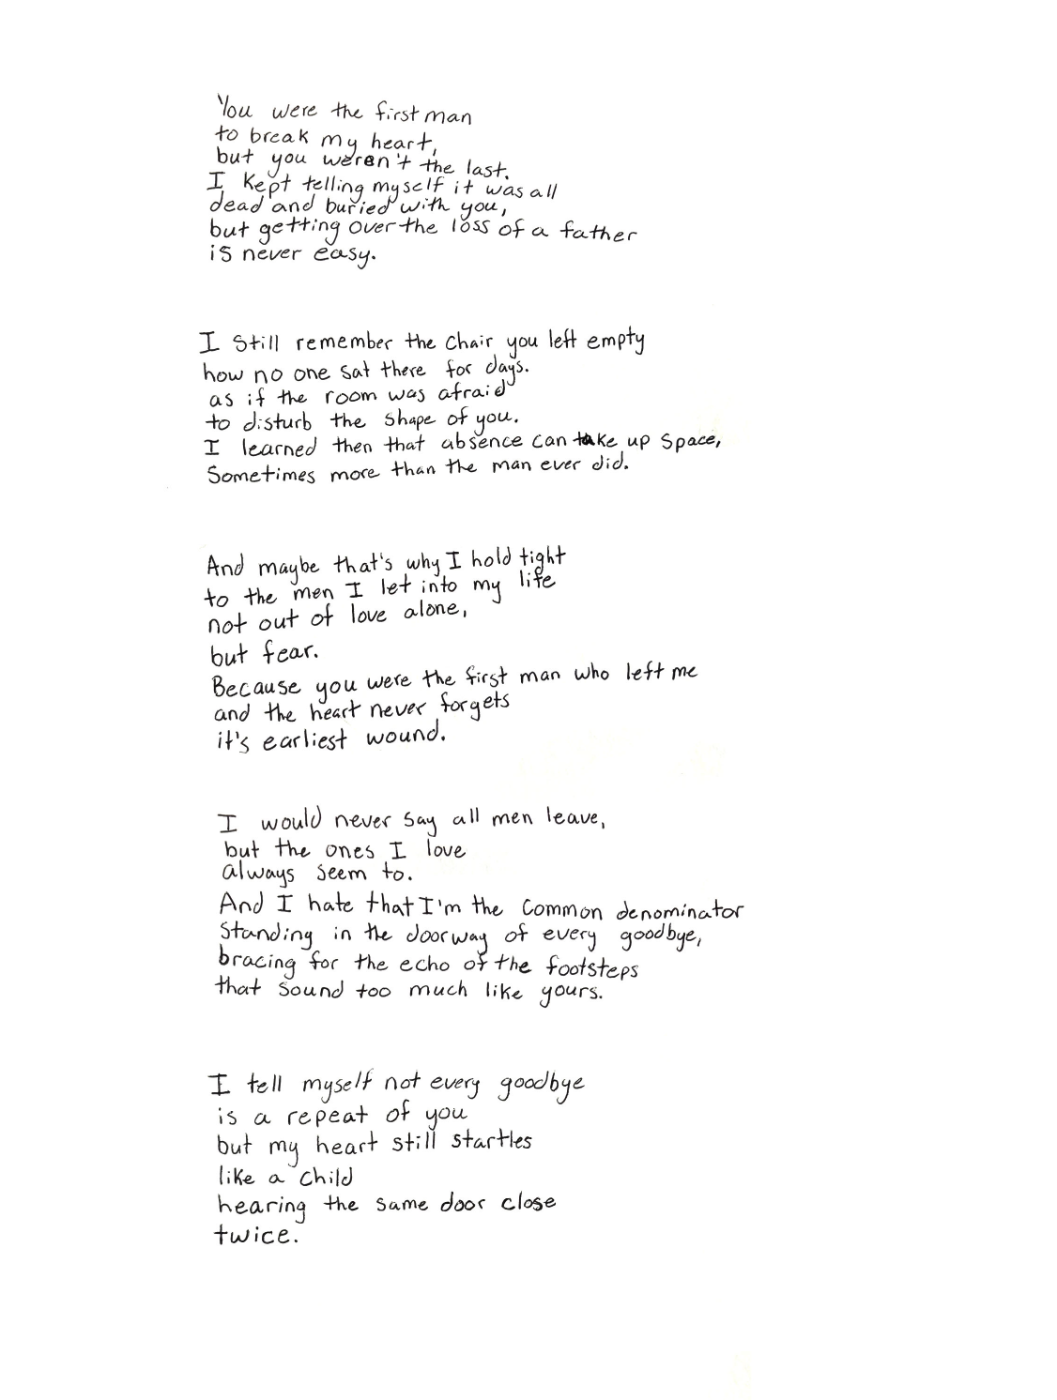 You were the first man
to break my heart,
but you weren't the last.
I kept telling myself it was all
dead and buried with you,
but getting over the loss of a father
is never easy.
I still remember the chair you left empty
how no one sat there for days.
as if the room was afraid
to disturb the shape of you.
I learned then that absence can take up space,
Sometimes more than the man ever did.
And maybe that's why I hold tight
to the men I let into my life
not out of love alone,
but fear.
Because you were the first man who left me
and the heart never forgets
it's earliest wound.
I would never say all men leave,
but the ones I love
always seem to.
And I hate that I'm the common denominator
Standing in the doorway of every goodbye,
bracing for the echo of the footsteps
that sound too much like yours.
I tell myself not every goodbye
is a repeat of you
but my heart still startles
like a child
hearing the same door close
twice.